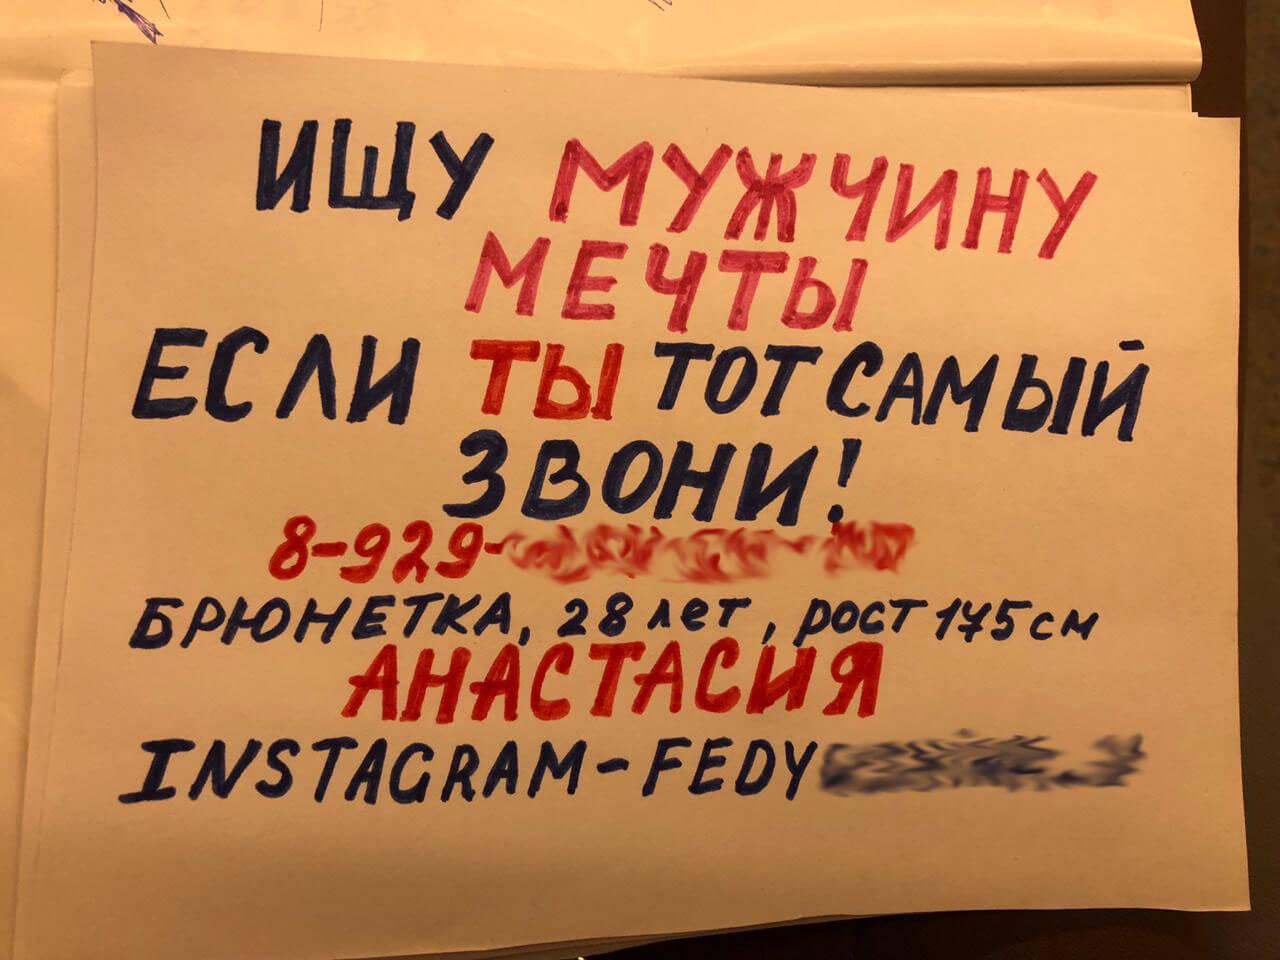 ИЩУ МУЖЧИНУ
МЕЧТЫ
ЕСЛИ ТЫ ТОТ САМЫЙ
ЗВОНИ!
8-929-
БРЮНЕТКА, 28 лет, рост 175 см
АНАСТАСИЯ
INSTAGRAM-FEDY